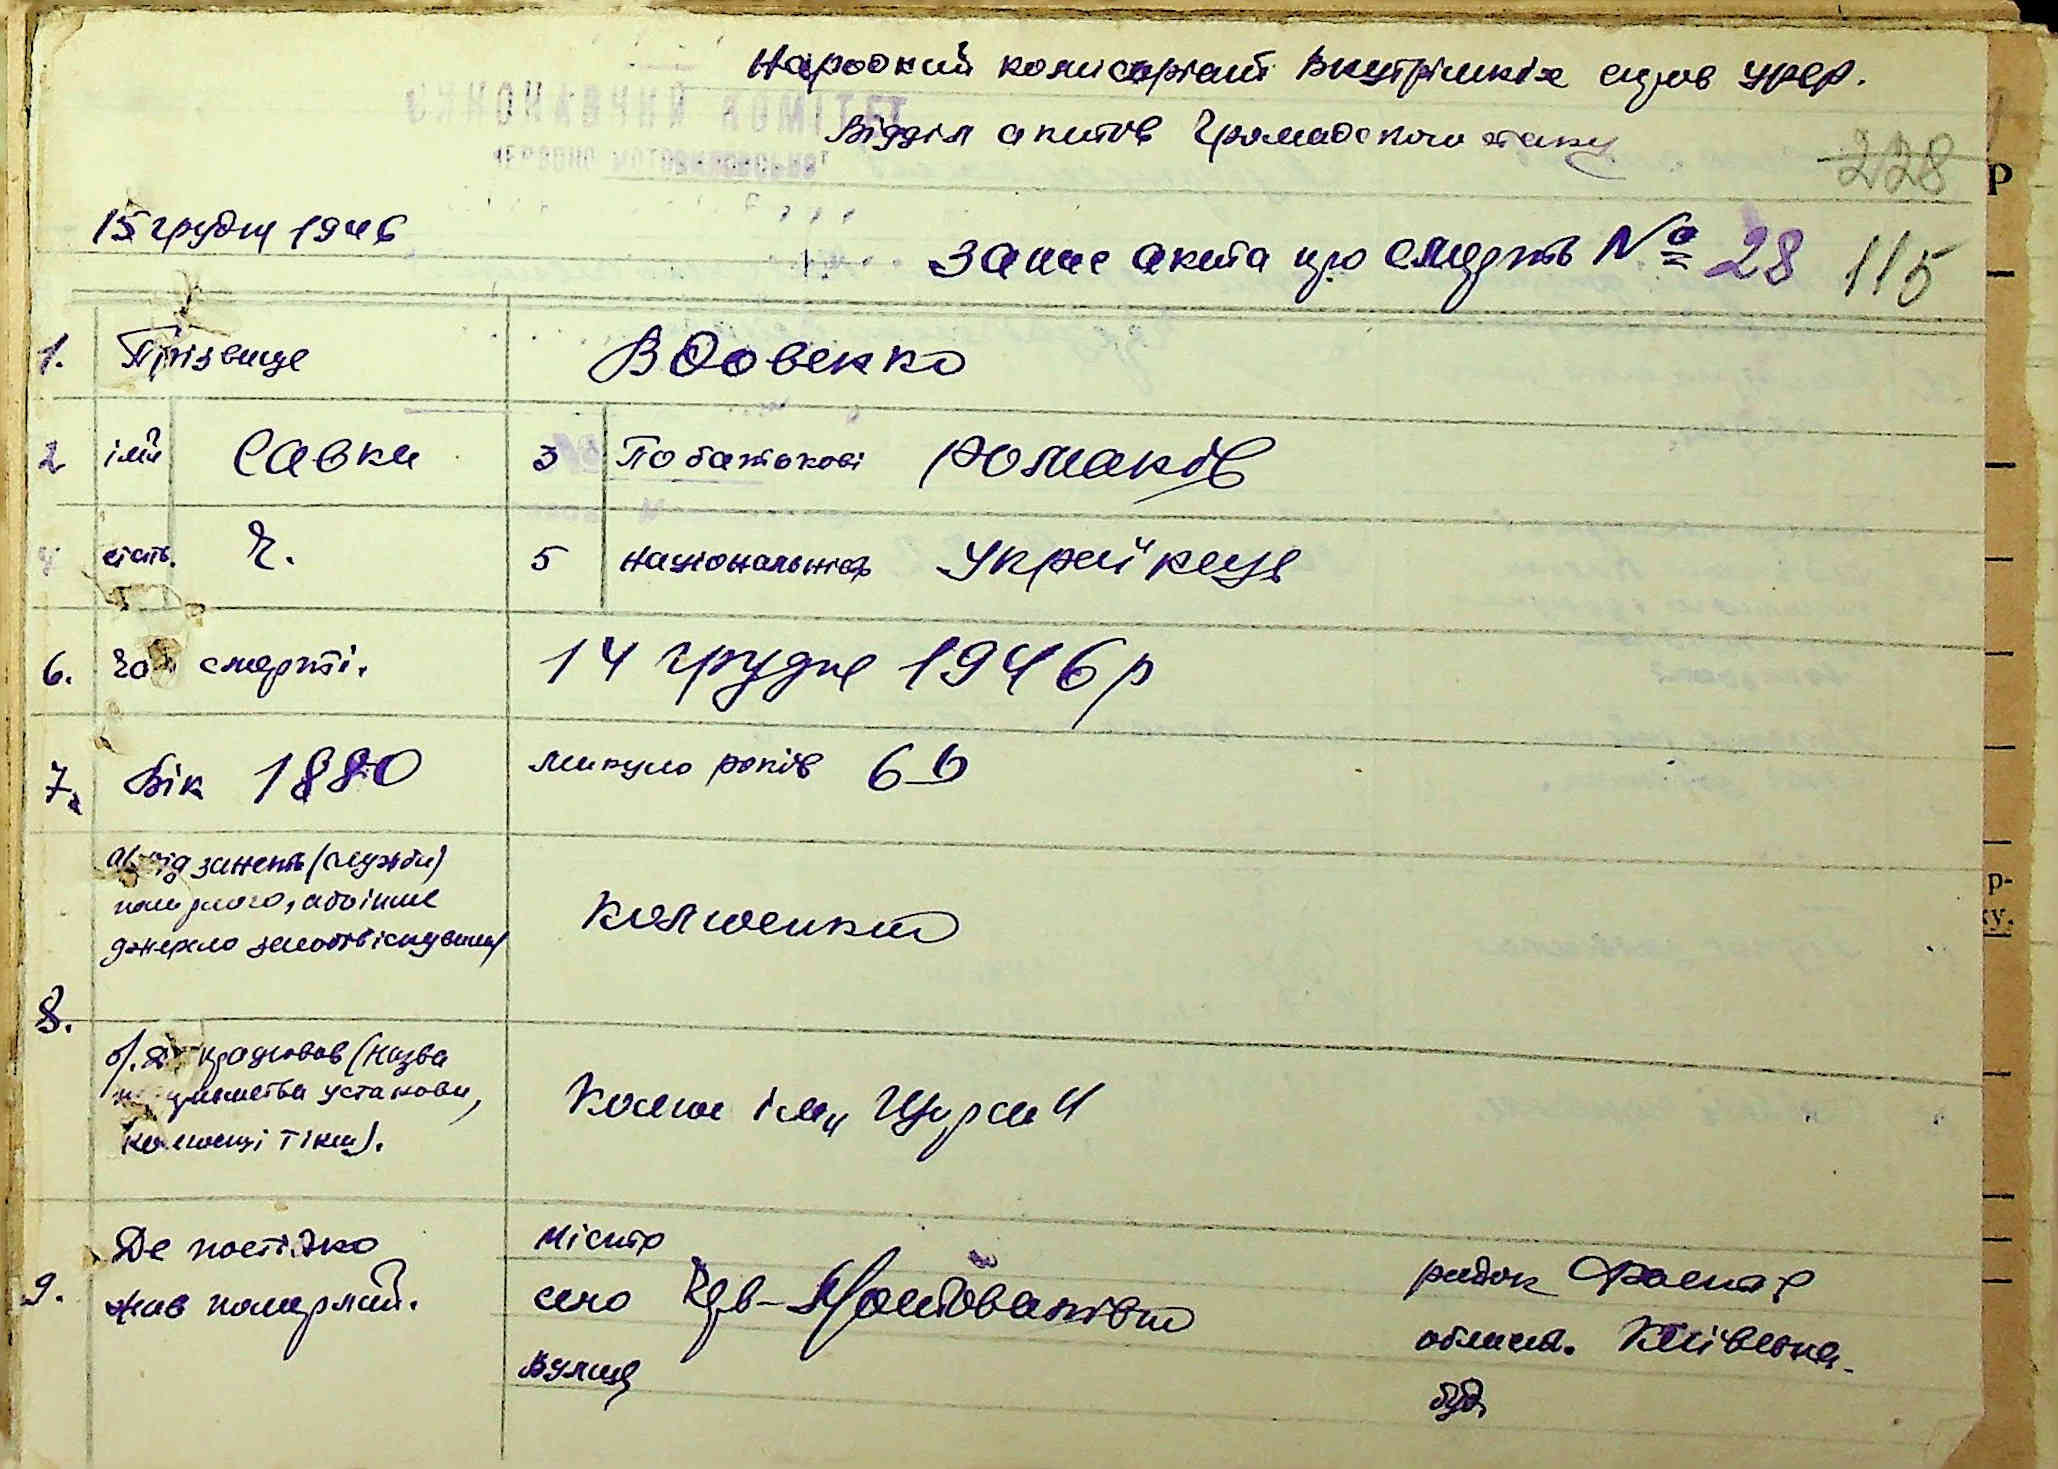 Народний комісаріат внутрішніх справ УРСР.
Відділ актов громадського стану
228
15 грудня 1946
Запис акта про смерть № 28 115
1. Прізвище Вдовенко
2 імя Савка 3 По батькові Романов
4 стать. Ч. 5 національність Українець
6. Час смерті. 14 грудня 1946 р
7. Вік 1880 минуло років 66
а/ рід занять (служби)
померлого, або інше
джерело засобів існування колгоспник
8.
б/. Де працював (назва
підприємства установи, Колгосп ім, Щорса
колгоспі і т. інш).
9. Де постійно
жив померлий.
місто
село Чер-Мотовилівка район Фастів
област. Київська
Вулиця буд,